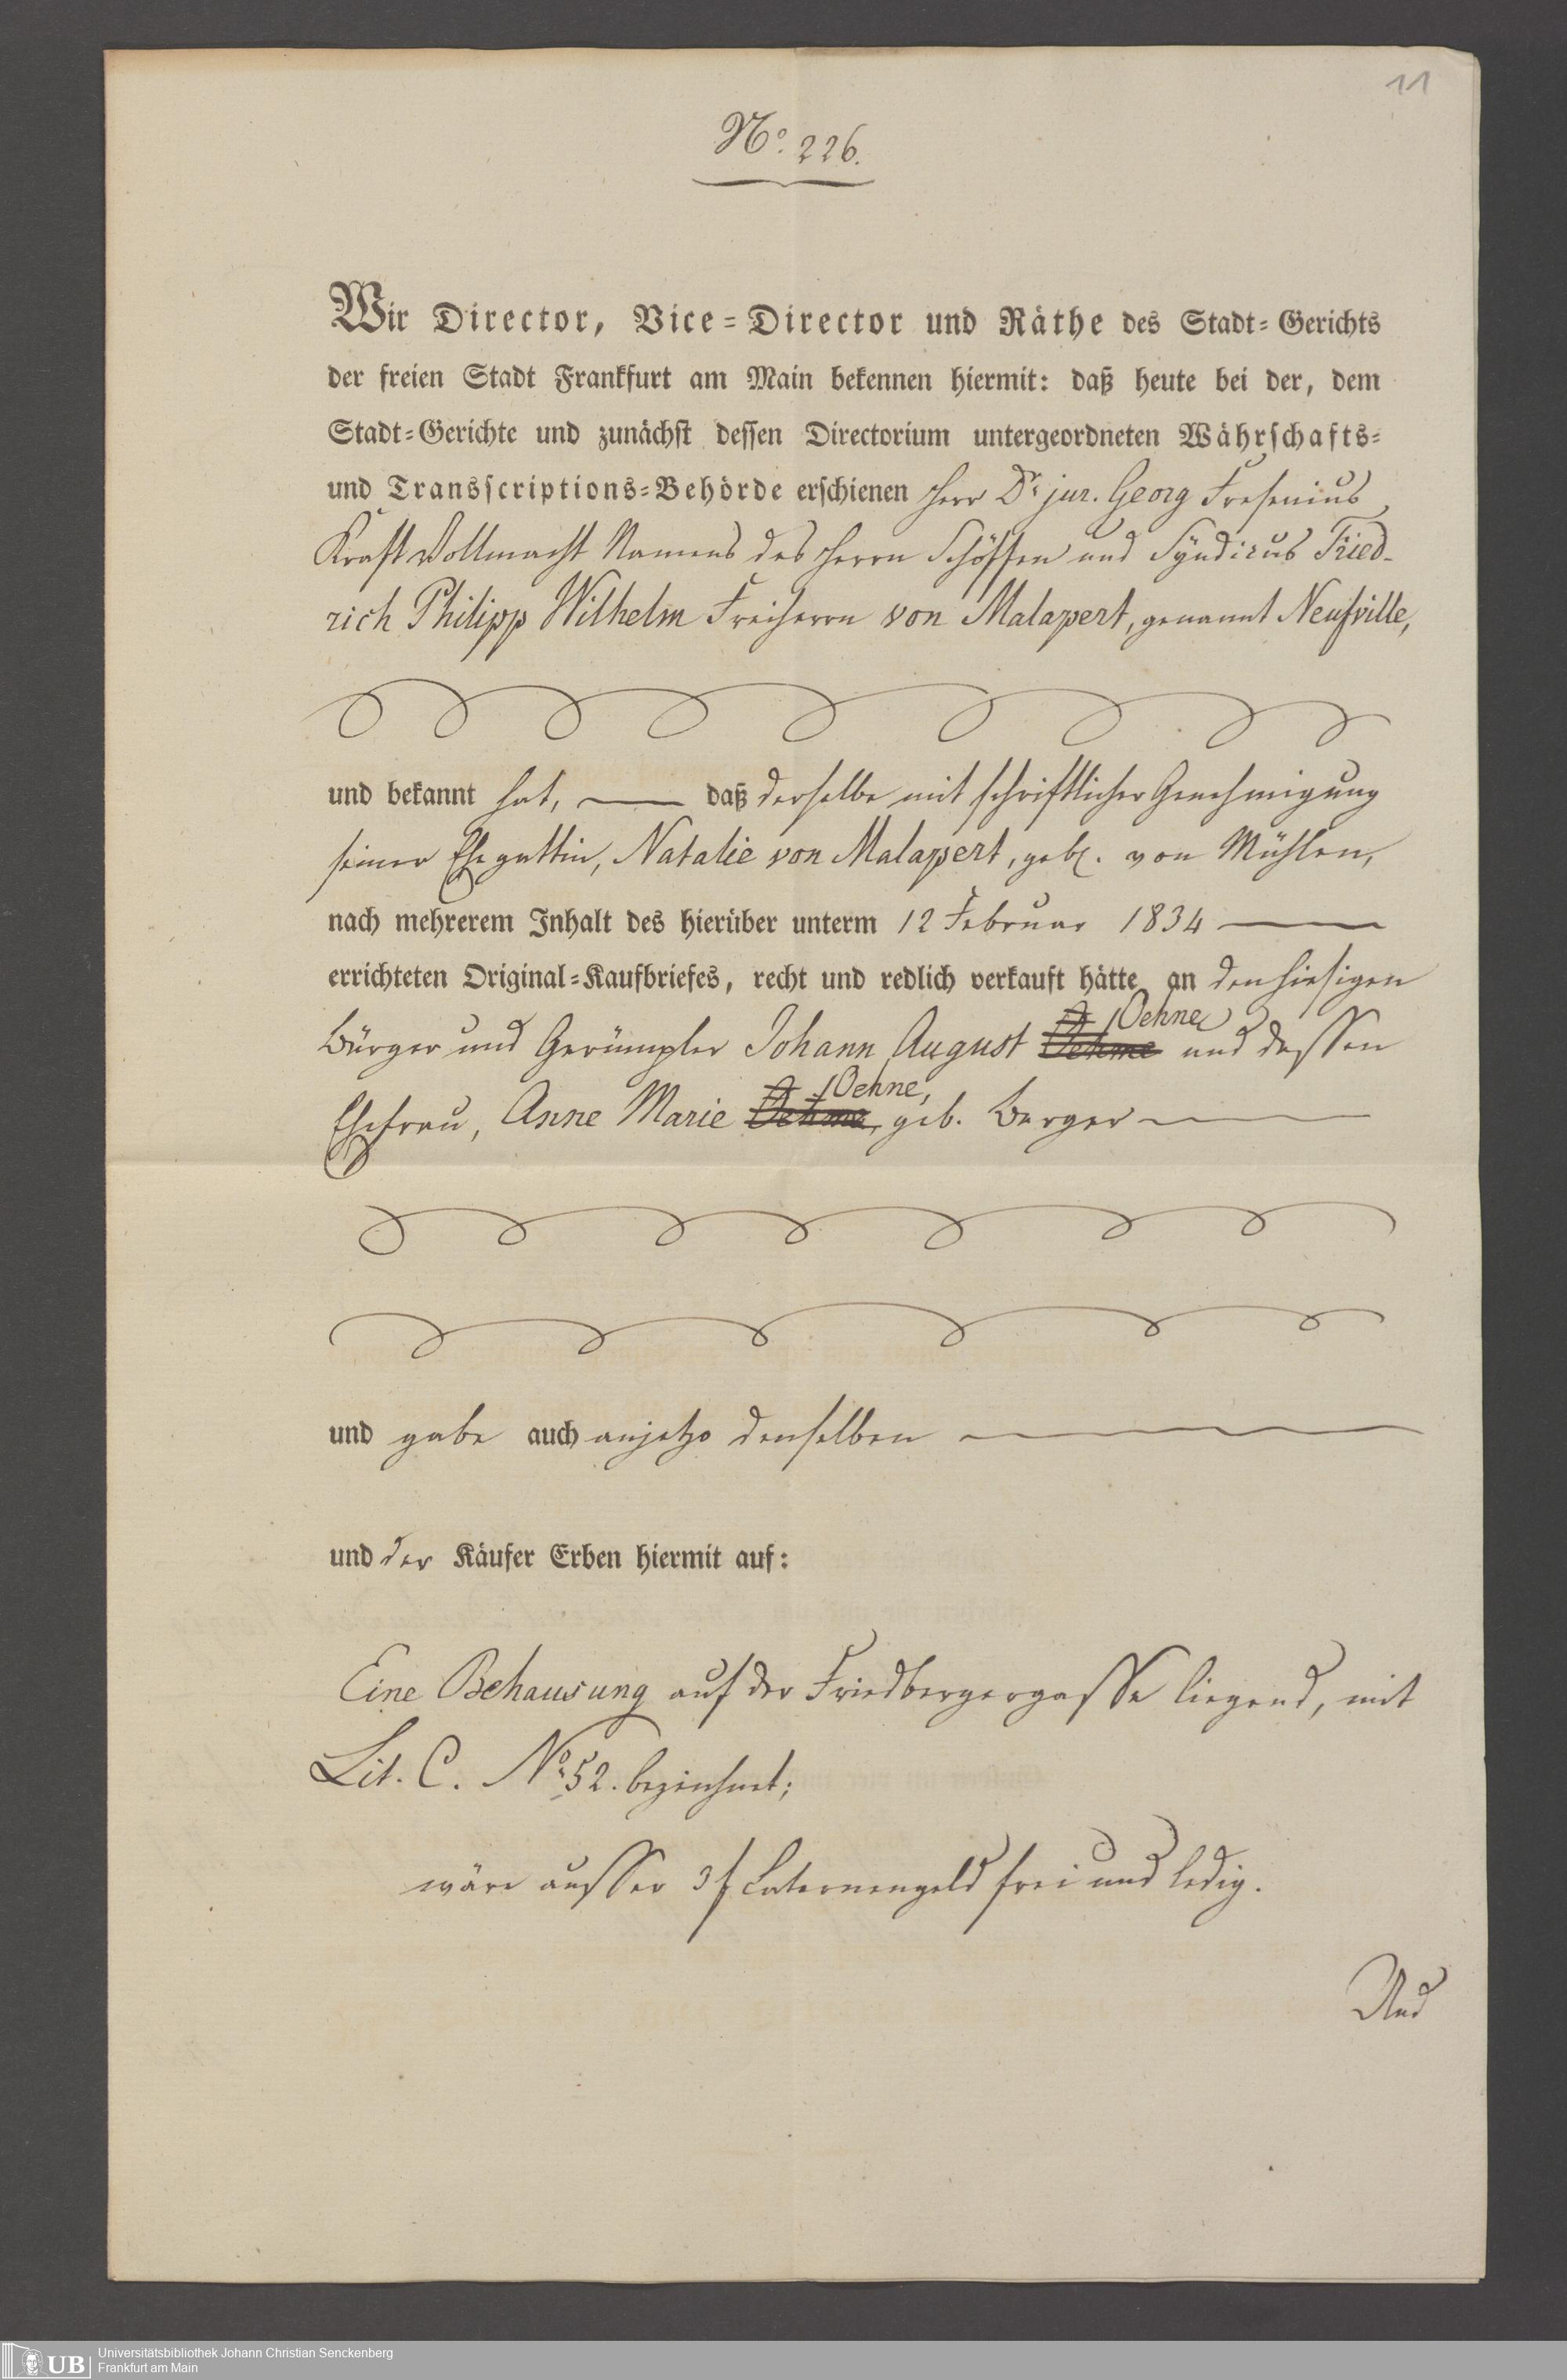 11
No. 226.
Wir Director, Vice-Director und Räthe des Stadt-Gerichts
der freien Stadt Frankfurt am Main bekennen hiermit: daß heute bei der, dem
Stadt-Gerichte und zunächst dessen Directorium untergeordneten Währschafts-
und Transscriptions-Behörde erschienen Herr Dr jur. Georg Fresenius
Kraft Vollmacht Namens des Herrn Schöffen und Syndicus Fried-
rich Philipp Wilhelm Freiherrn von Malapert, genannt Neufville,
und bekannt hat, daß derselbe mit schriftlicher Genehmigung
seiner Ehegattin, Natalie von Malapert, geb. von Mühlen,
nach mehrerem Inhalt des hierüber unterm 12 Februar 1834
errichteten Original-Kaufbriefes, recht und redlich verkauft hätte an den hiesigen
Bürger und Gerümpler Johann August Oehme Oehne und dessen
Ehefrau, Anne Marie Oehme, Oehne, geb. Berger
und gabe auch anjetzo denselben
und der Käufer Erben hiermit auf:
Eine Behausung auf der Friedbergergasse liegend, mit
Lit. C. No. 52. bezeichnet;
wäre ausser 3 f Laternengeld frei und ledig.
Und
UB
Universitätsbibliothek Johann Christian Senckenberg
Frankfurt am Main